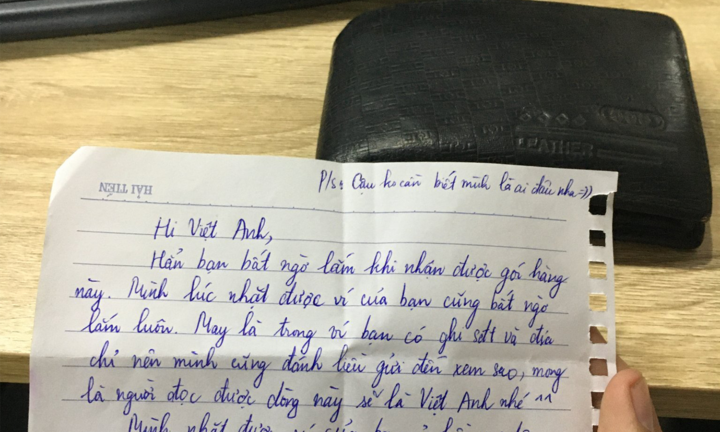 LEATHER
HẢI TIẾN
P/s: Cậu ko cần biết mình là ai đâu nha =))
Hi Việt Anh,
Hẳn bạn bất ngờ lắm khi nhận được gói hàng
này. Mình lúc nhặt được ví của bạn cũng bất ngờ
lắm luôn. May là trong ví bạn có ghi sđt và địa
chỉ nên mình cũng đánh liều gửi đến xem sao, mong
là người đọc được dòng này sẽ là Việt Anh nhé ^^
Mình nhặt được ví của bạn